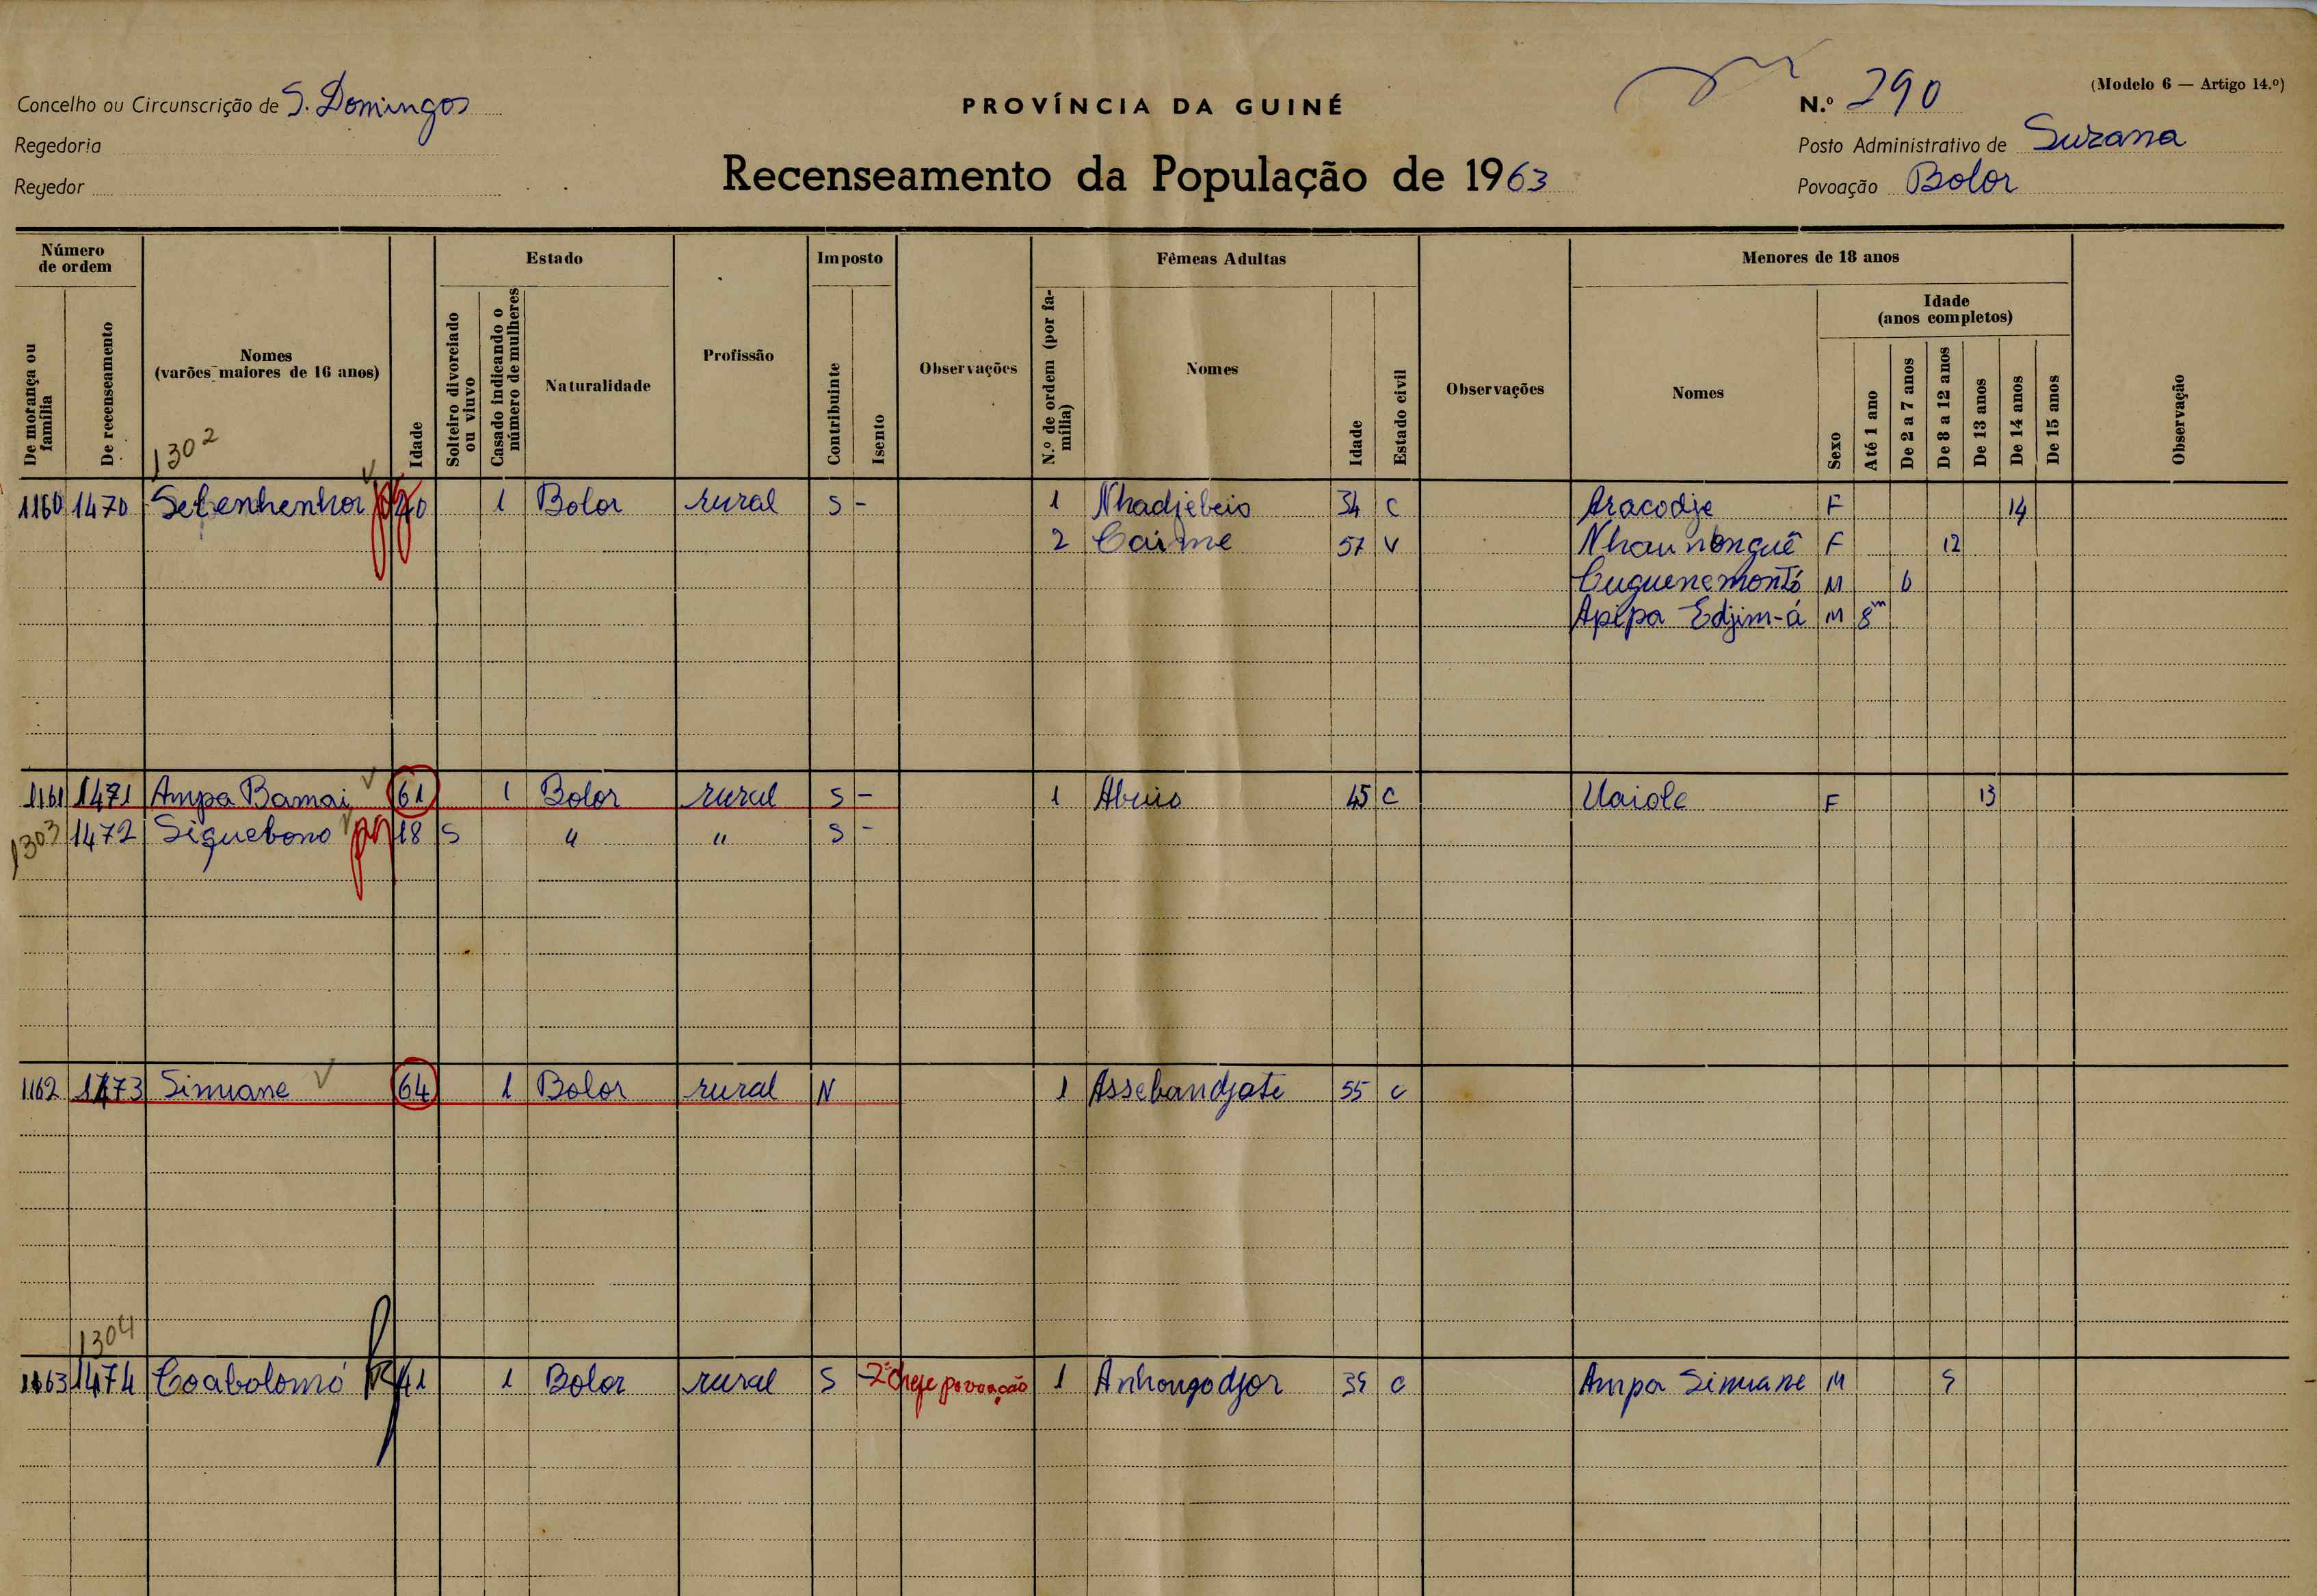 (Modelo 6 — Artigo 14.º)
Concelho ou Circunscrição de S. Domingos
PROVÍNCIA DA GUINÉ
N.º 290
Regedoria
Posto Administrativo de Suzana
Regedor
Recenseamento da População de 1963
Povoação Bolor
Número de ordem
Estado
Imposto
Fêmeas Adultas
Menores de 18 anos
De morança ou família
De recenseamento
Nomes
(varões maiores de 16 anos)
Idade
Solteiro divorciado ou viuvo
Casado indicando o número de mulheres
Naturalidade
Profissão
Contribuinte
Isento
Observações
N.º de ordem (por família)
Nomes
Idade
Estado civil
Observações
Nomes
Sexo
Idade
(anos completos)
Até 1 ano
De 2 a 7 anos
De 8 a 12 anos
De 13 anos
De 14 anos
De 15 anos
Observação
1302
1160 1470 Sebenhenhor pg 40 1 Bolor rural S - 1 Nhadjebeio 34 C Aracodje F 14
2 Caime 57 V Nhaunonguê F 12
Cuguenemontó M 6
Apipa Edjim-á M 8m
1161 1471 Ampa Bamai 61 1 Bolor rural S - 1 Abuio 45 C Uaiole F 13
1303 1472 Siquebono pg 18 S " " S -
1162 1473 Simuane 64 1 Bolor rural N 1 Assebandjate 55 C
1304
1163 1474 Coabolomó 41 1 Bolor rural S - 2º chefe povoação 1 Anhongodjor 39 C Ampa Simuane M 9